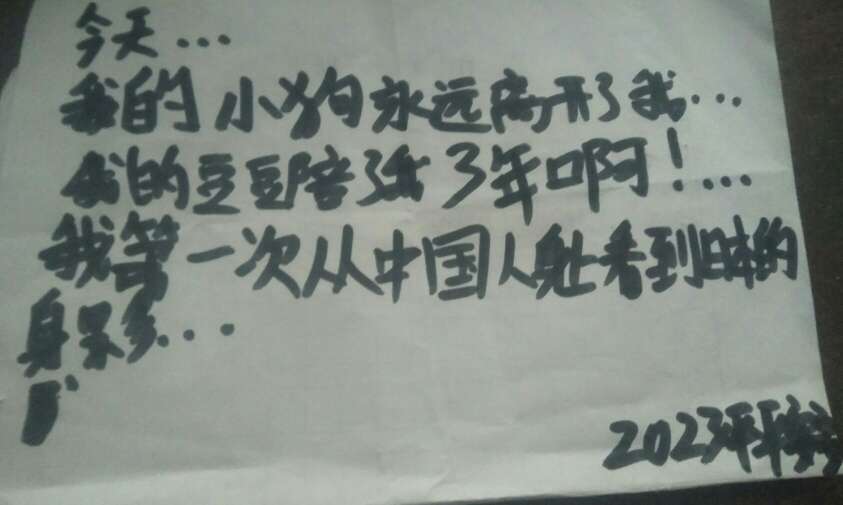 今天...
我的小狗永远离开了我...
我的豆豆陪了我3年啊!...
我第一次从中国人身上看到日本的
身
2023年